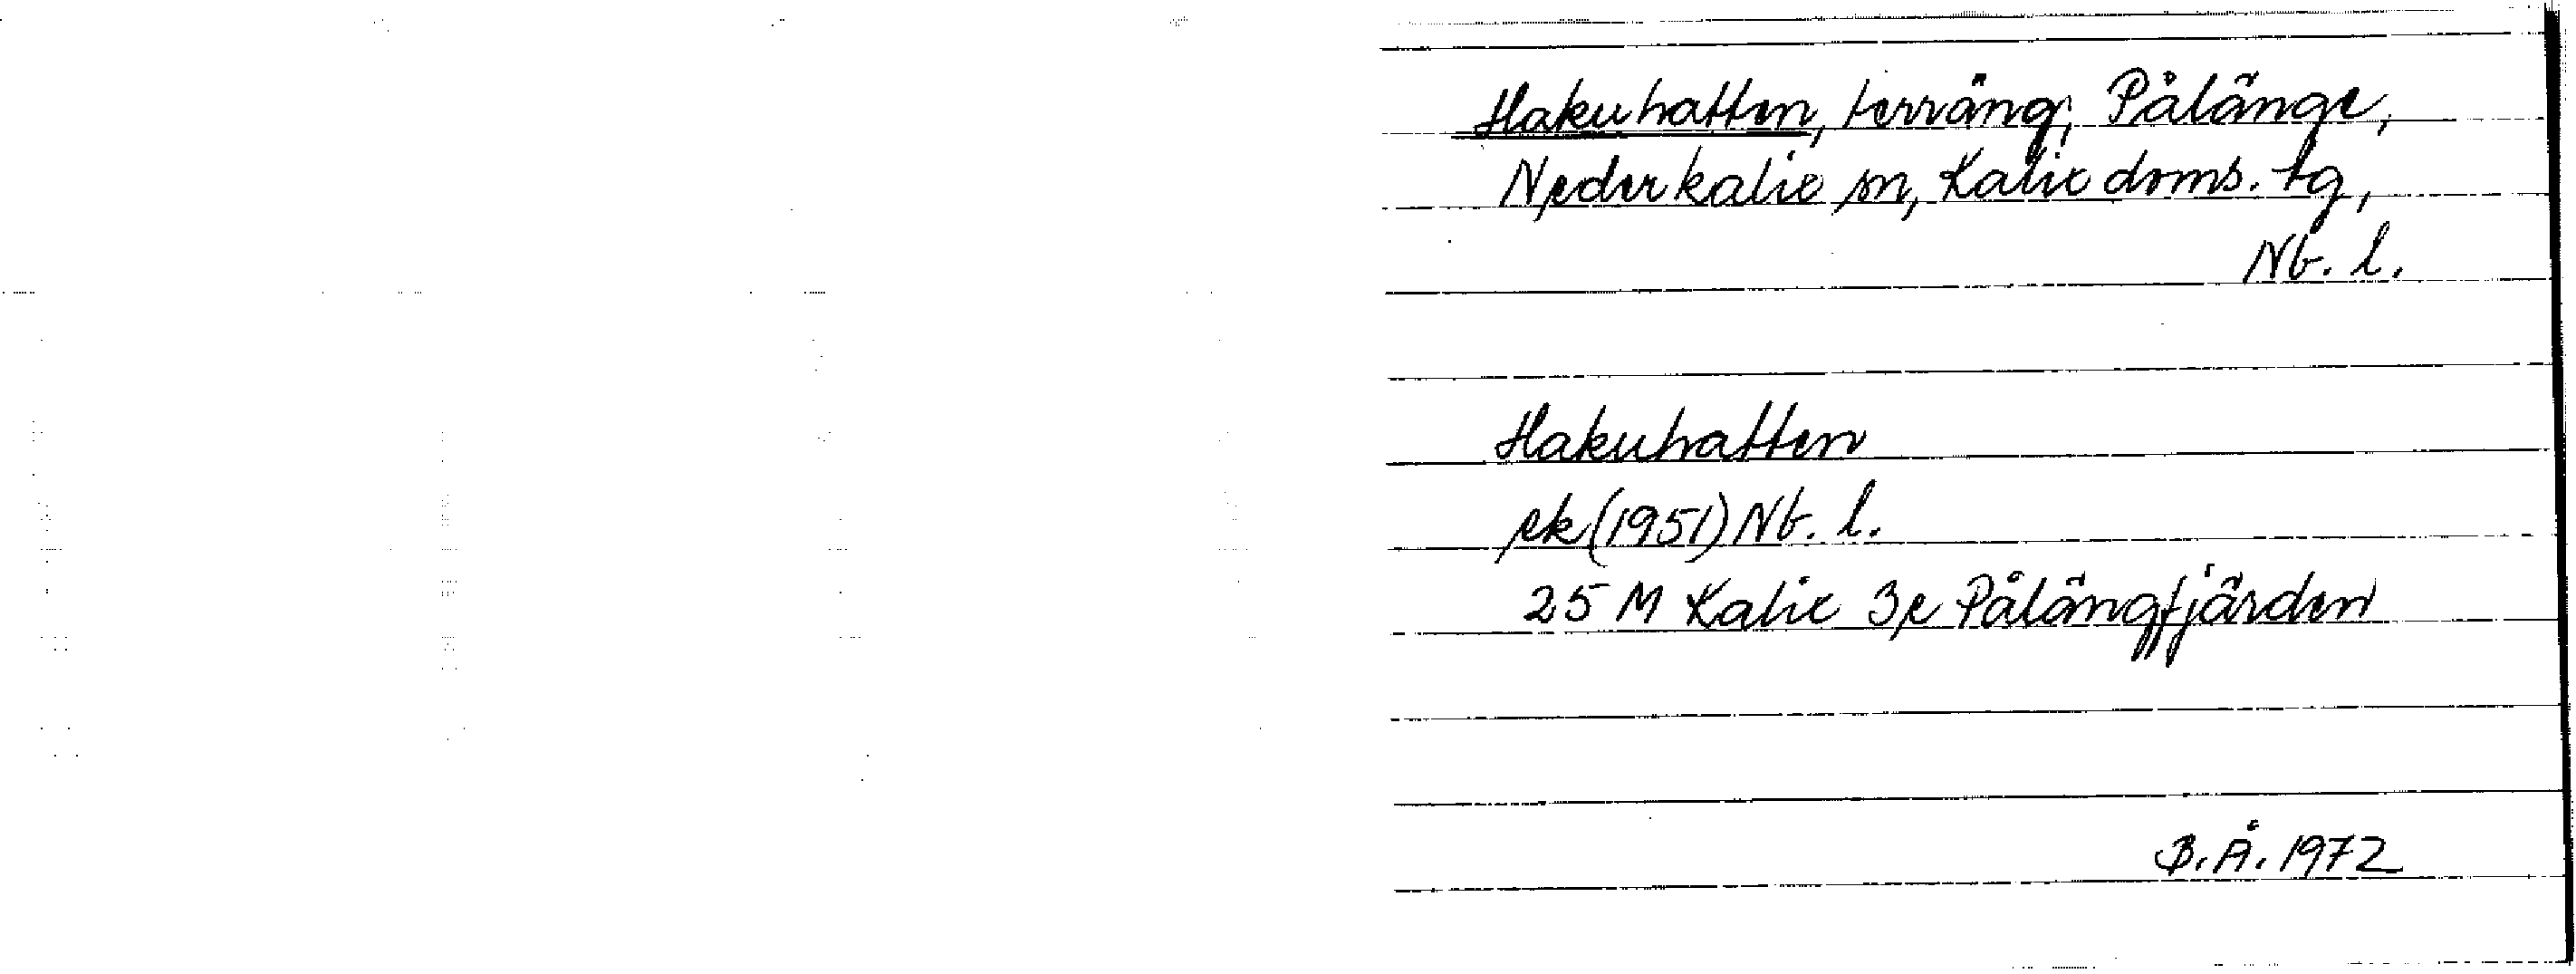 Hakuhatten, terräng, Pålänge,
Nederkalix sn, Kalix doms. tg,
Nb. l.
Hakuhatten
ek (1951) Nb. l.
25 M Kalix 3e Pålängfjärden
B. Å. 1972